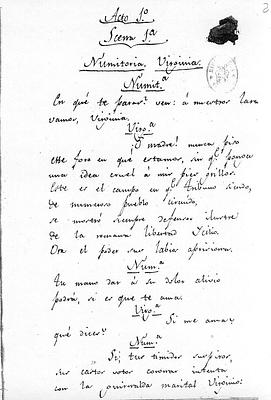 Acto 1º
Scena 1ª
Numitoria, Virginia.
Numit.ª
En qué te paras? ven: á nuestros lares
vamos, Virginia.
Virg.ª
O madre! nunca piso
este foro en que estamos, sin q.e ponga
una idea cruel á mis pies grillos.
Este es el campo en q.e tribuno siendo,
de numeroso pueblo circuido,
se mostró siempre defensor ilustre
de la romana libertad Icilio.
Ora el poder sus labios aprisiona.
Num.ª
Tu mano dar á su dolor alivio
podrá, si es que te ama.
Virg.ª
Si me ama?
qué dices?
Num.ª
Si; tus timidos suspiros,
sus castos votos coronar intenta
con la guirnalda marital Virginio: